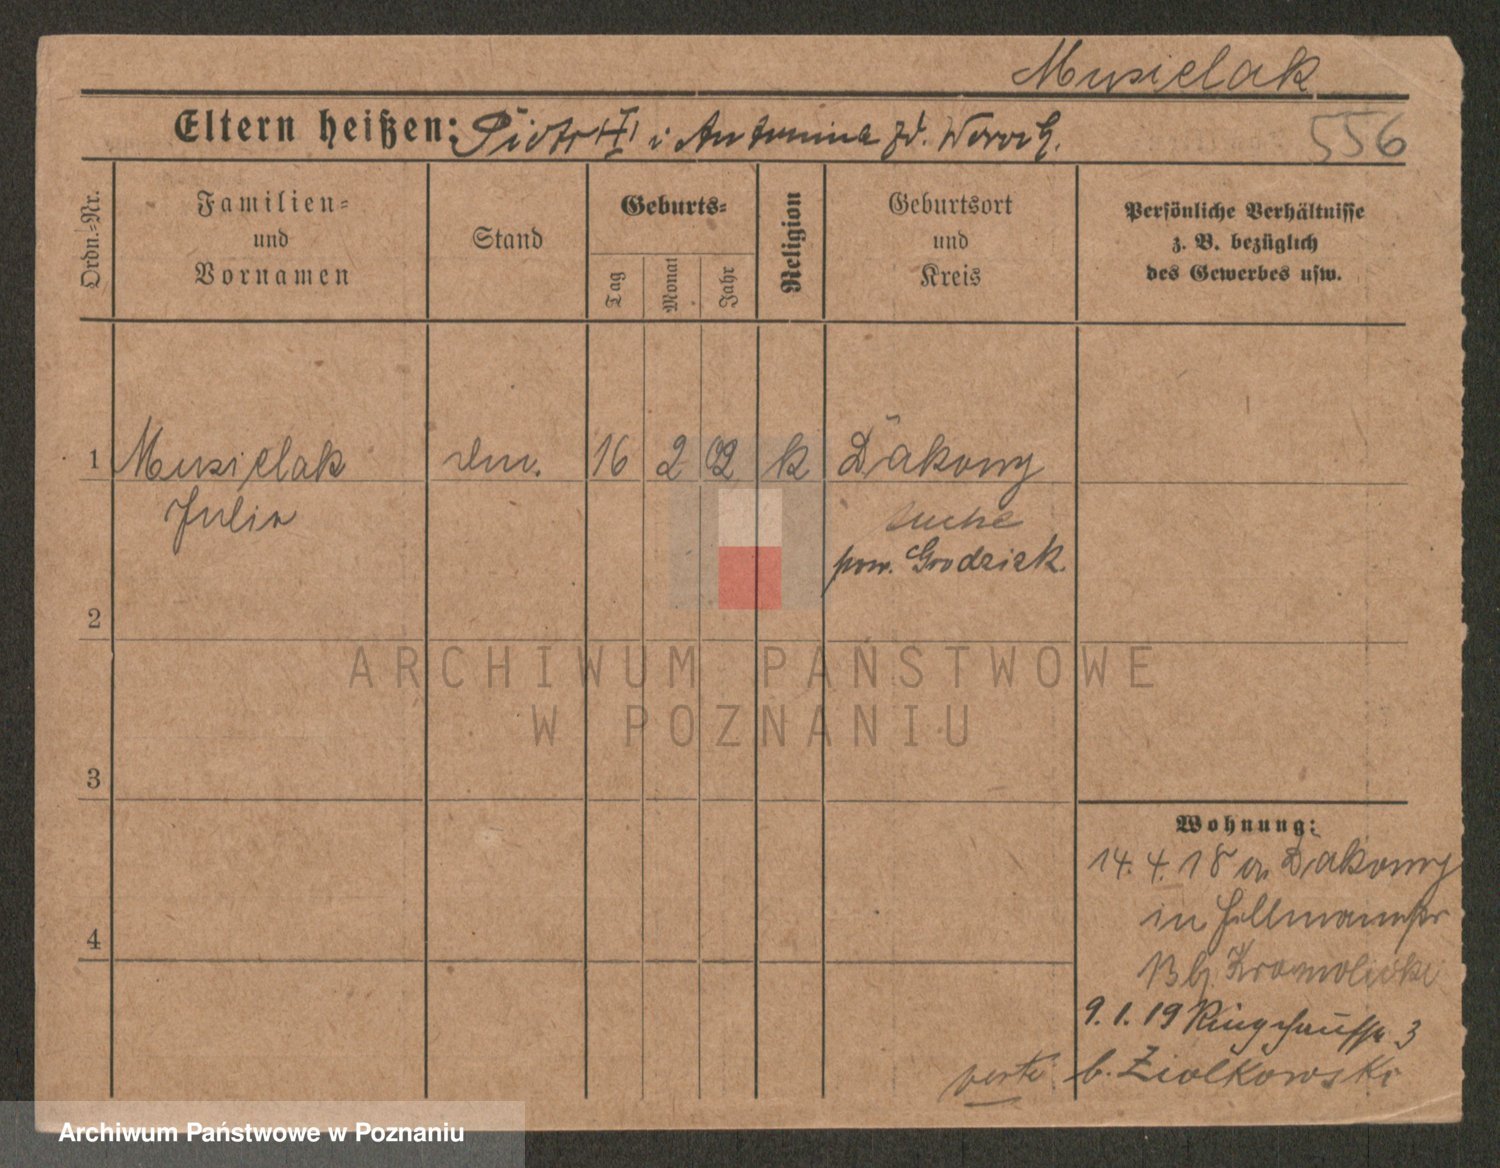 Musielak
Eltern heißen: Piotr i Antonina zd.
556
Ordn.-Nr.
Familien-
und
Vornamen
Stand
Geburts-
Tag
Monat
Jahr
Religion
Geburtsort
und
Kreis
Persönliche Verhältnisse
z. B. bezüglich
des Gewerbes usw.
1 Musielak 16 2 02 k Dąkowy
Julia suche
pow. Grodzisk.
2
3
4
Wohnung:
14. 4. 18 Dakowy
in
13 bj
9. 1. 19 3
verte b. Ziolkowski
ARCHIWUM PAŃSTWOWE
W POZNANIU
Archiwum Państwowe w Poznaniu